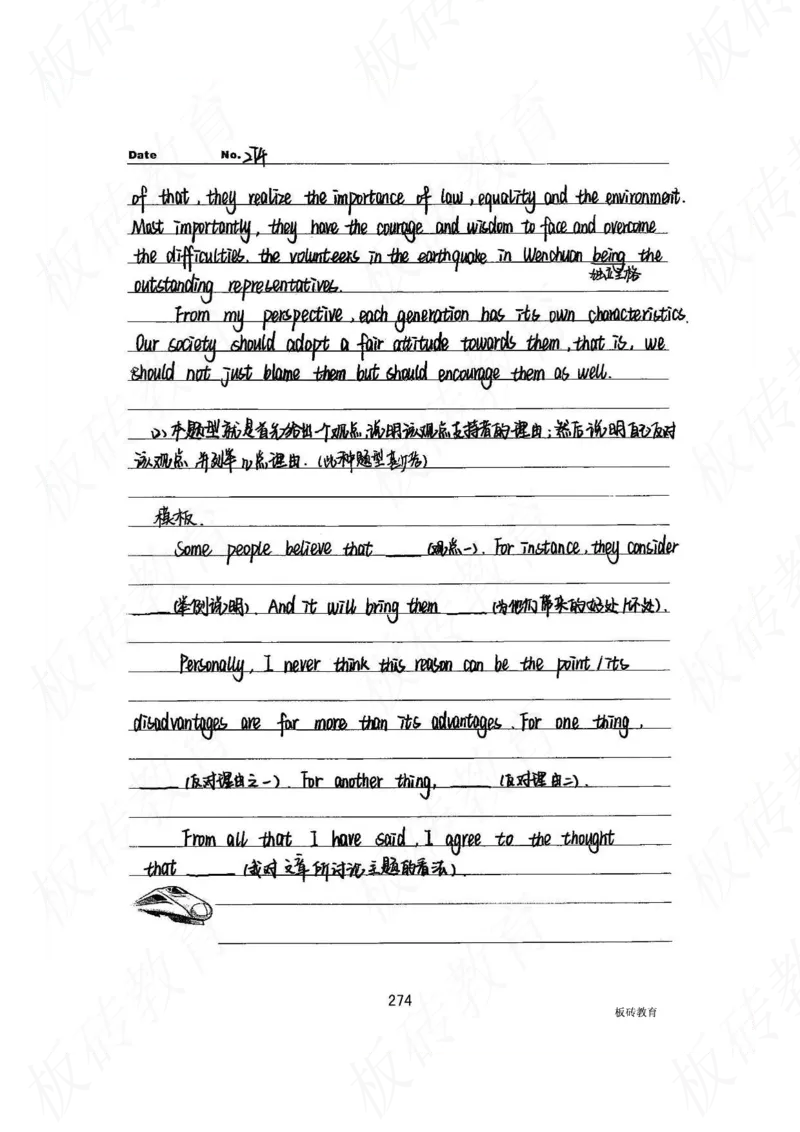 Date No. 274
of that, they realize the importance of law, equality and the environment.
Most importantly, they have the courage and wisdom to face and overcome
the difficulties. the volunteers in the earthquake in Wenchuan being the
独立主格
outstanding representatives.
From my perspective, each generation has its own characteristics.
Our society should adopt a fair attitude towards them, that is, we
should not just blame them but should encourage them as well.
(2) 本题型就是首先给出一个观点,说明该观点支持者的理由;然后说明自己反对
该观点 并列举几点理由.(此种题型
模板.
Some people believe that ____ (观点一). For instance, they consider
____ (举例说明). And it will bring them ____ (为他们带来的好处/坏处).
Personally, I never think this reason can be the point / its
disadvantages are far more than its advantages. For one thing,
____ (反对理由之一). For another thing, ____ (反对理由二).
From all that I have said, I agree to the thought
that ____ (我对文章所讨论主题的看法).
274
板砖教育